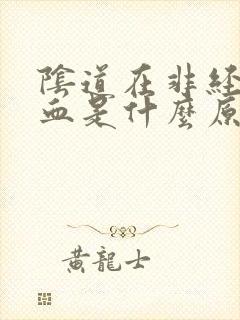 陰道在非經
血是什麼原
黃龍士